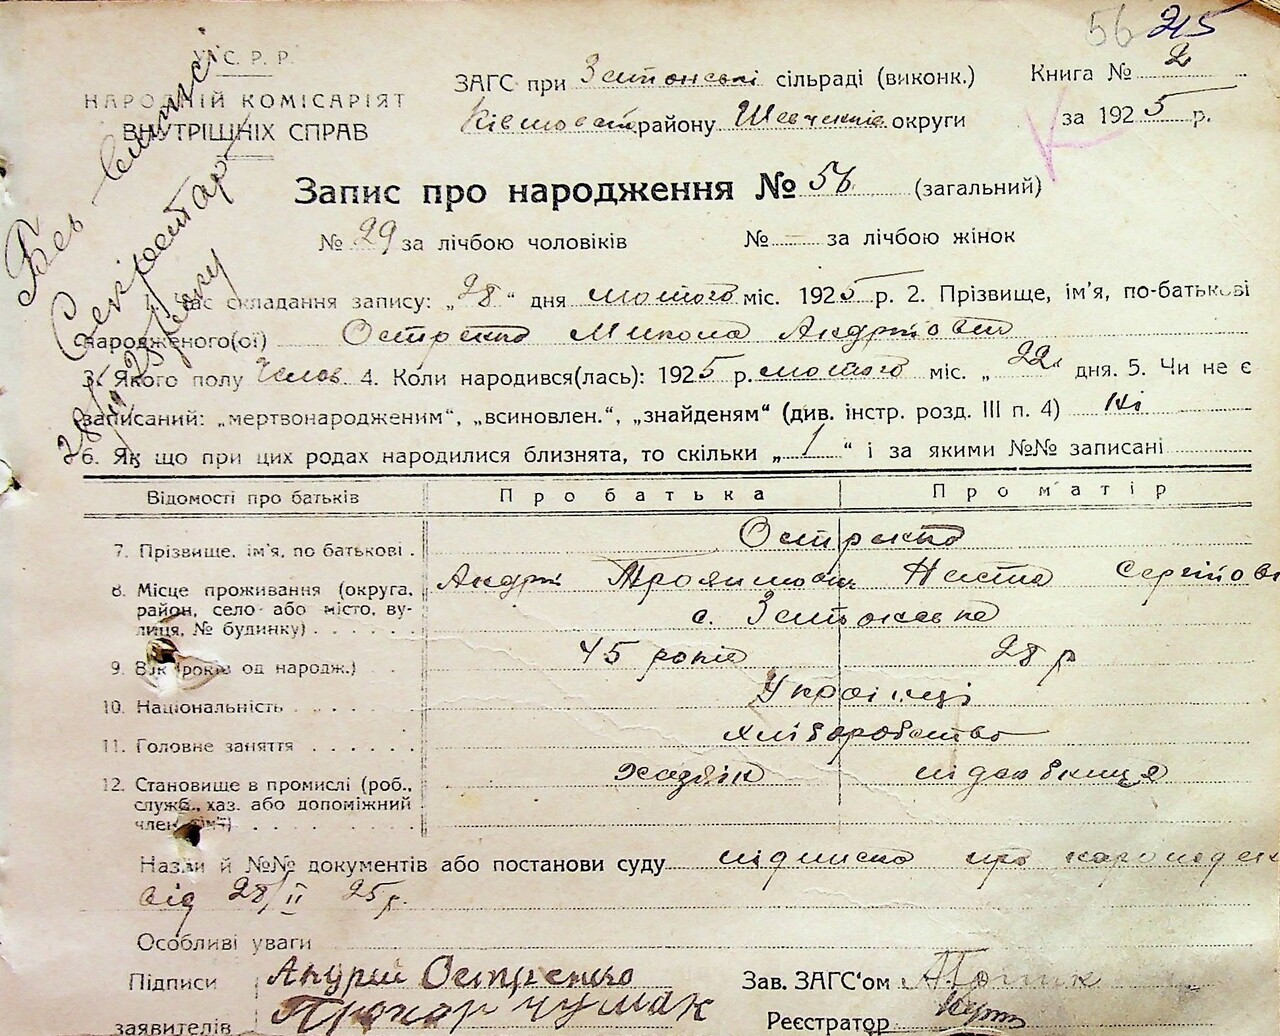 56 215
У.С.Р.Р.
НАРОДНІЙ КОМІСАРІЯТ
ВНУТРІШНІХ СПРАВ
ЗАГС при сільраді (виконк.)
району Шевченків округи
Книга № 2
за 1925 р.
Запис про народження № 56 (загальний)
№ 29 за лічбою чоловіків № — за лічбою жінок
1. Час складання запису: „28“ дня лютого міс. 1925 р. 2. Прізвище, ім'я, по-батькові
народженого(ої) Микола Андрійович
3. Якого полу Чолов 4. Коли народився(лась): 1925 р. лютого міс. „22“ дня. 5. Чи не є
записаний: „мертвонародженим“, „всиновлен.“, „знайденям“ (див. інстр. розд. III п. 4) Ні
6. Як що при цих родах народилися близнята, то скільки „1“ і за якими №№ записані
Відомості про батьків Про батька Про матір
7. Прізвище, ім'я, по батькові .
Андрій Настя
8. Місце проживання (округа,
район, село або місто, ву-
лиця, № будинку)
с.
9. Вік (років од народж.) 45 років 28 р
10. Національність Українці
11. Головне заняття хліборобство
12. Становище в промислі (роб.,
служб., хаз. або допоміжний
член сім'ї)
хазяїн
Назви й №№ документів або постанови суду підписка про
від 28/II 25р.
Особливі уваги
Підписи Андрій Остренко
заявителів Прокар Чумак
Зав. ЗАГС'ом
Реєстратор